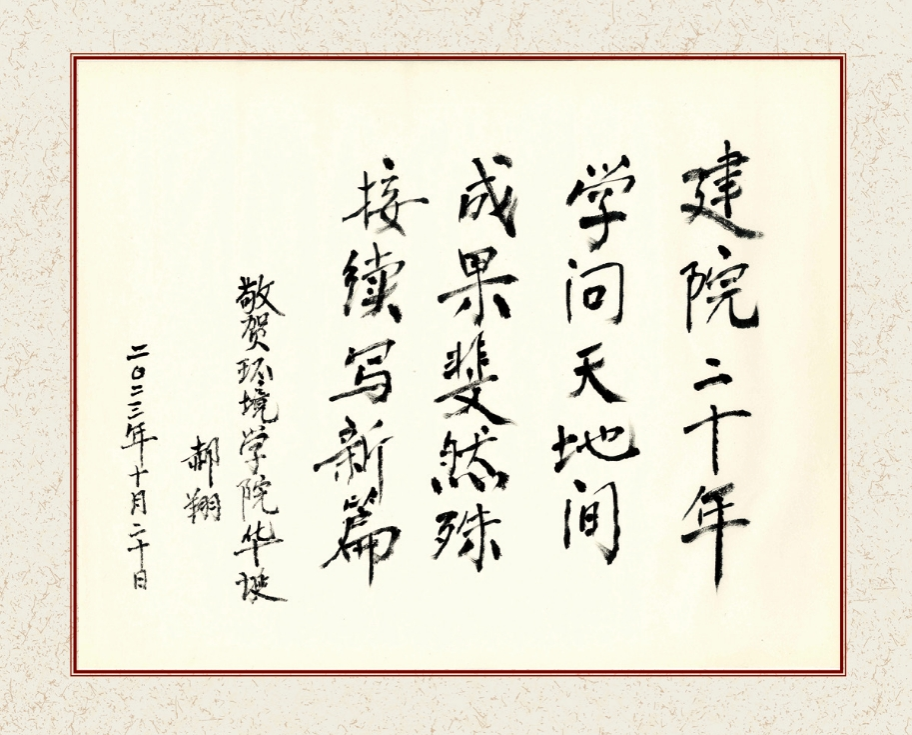 建院二十年
学问天地间
成果斐然殊
接续写新篇
敬贺环境学院华诞
郝翔
二〇二三年十月二十日